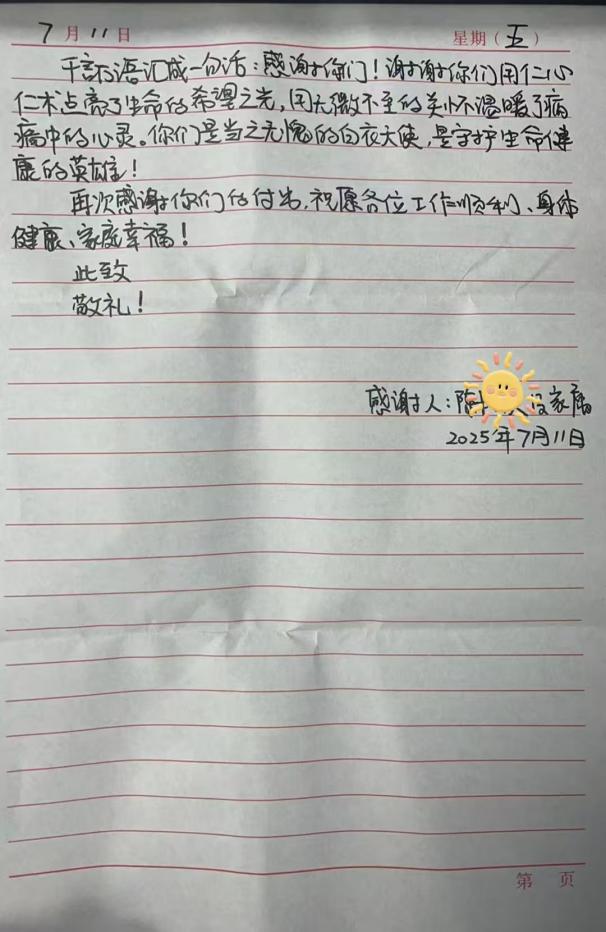 7月11日 星期(五)
千言万语汇成一句话:感谢你们!谢谢你们用仁心
仁术点亮了生命的希望之光,用无微不至的关怀温暖了病
痛中的心灵。你们是当之无愧的白衣天使,是守护生命健
康的英雄!
再次感谢你们的付出,祝愿各位工作顺利、身体
健康、家庭幸福!
此致
敬礼!
感谢人:陈 及家属
2025年7月11日
第 页